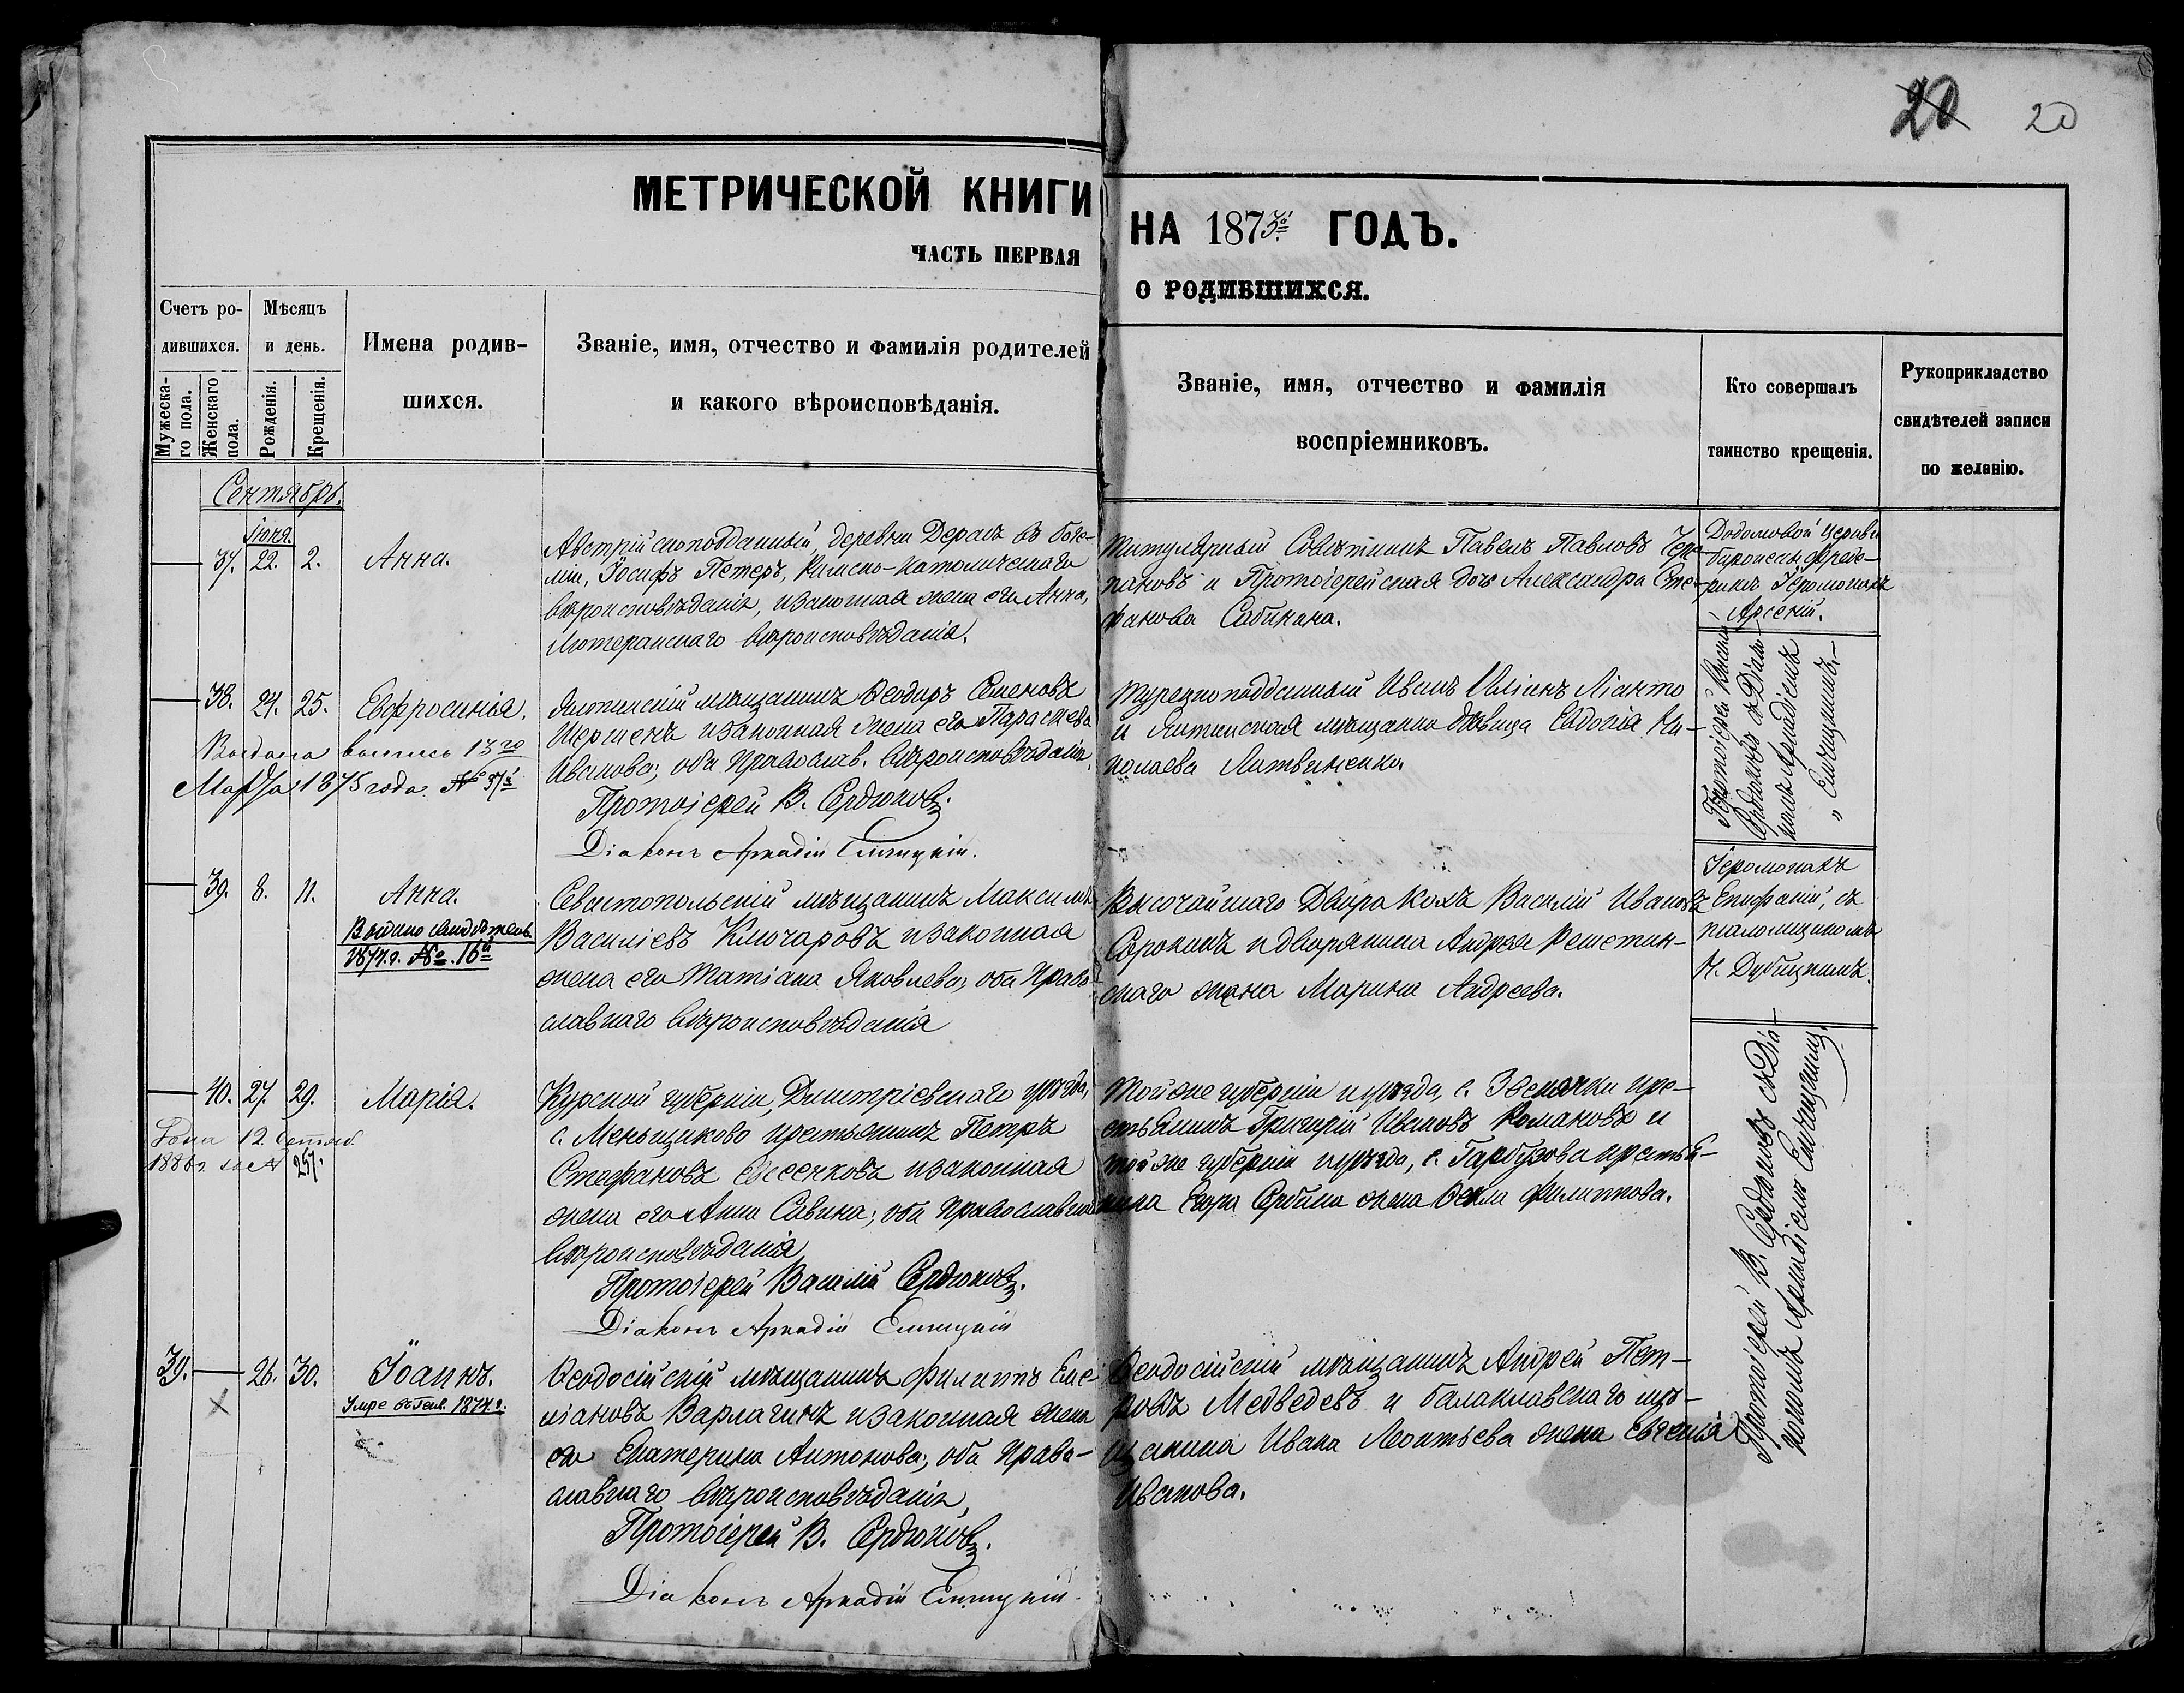 20 20
МЕТРИЧЕСКОЙ КНИГИ НА 1873й ГОДЪ.
ЧАСТЬ ПЕРВАЯ О РОДИВШИХСЯ.
Счетъ ро-
дившихся.
Мужеска-
го пола.
Женскаго
пола.
Мѣсяцъ
и день.
Рожденія.
Крещенія.
Имена родив-
шихся.
Званіе, имя, отчество и фамилія родителей
и какого вѣроисповѣданія.
Званіе, имя, отчество и фамилія
воспріемниковъ.
Кто совершалъ
таинство крещенія.
Рукоприкладство
свидѣтелей записи
по желанію.
Сентябрь.
Іюня.
37. 22. 2. Анна.
Австрійскоподданный, деревни Дералъ въ Боге-
міи, Іосифъ Петеръ, Римско-Католическаго
вѣроисповѣданія, и законная жена его Анна,
Лютеранскаго вѣроисповѣданія.
Титулярный Совѣтникъ Павелъ Павловъ
и Протоіерейская дочь Александра Сте-
фанова Сабинина.
Домовой Церкви
баронессы Фреде-
риксъ Іеромонахъ
Арсеній.
38. 24. 25. Евфросинія.
Выдана выпись 13го
Марта 1875 года. № 37й
Ялтинскій мѣщанинъ Ѳеодоръ Семеновъ
и законная жена его Параскева
Иванова; оба Православ. вѣроисповѣданія.
Протоіерей В. Сердюковъ.
Діаконъ Аркадій
Турецкоподданный Иванъ
и Ялтинская мѣщанка дѣвица Евдокія Ни-
колаева Литвиненко.
Протоіерей Василій
Сердюковъ съ Діа-
кономъ Аркадіемъ
39. 8. 11. Анна.
Выдано свидѣтель.
1874 г. №. 16й
Севастопольскій мѣщанинъ Максимъ
Василіевъ Ключаровъ и законная
жена его Татіана Яковлева; оба Право-
славнаго вѣроисповѣданія
Высочайшаго Двора Василій Ивановъ
Сорокинъ и дворянина Андрея Решетин-
скаго жена Марина Андреева.
Іеромонахъ
Епифаній, съ
псаломщикомъ
Н. Дубицкимъ.
40. 27. 29. Марія.
12 Сентяб.
1886 г. за № 257.
Курской губерніи, Димитріевскаго уѣзда,
с. Меньщиково крестьянинъ Петръ
Стефановъ и законная
жена его Анна Савина; оба Православнаго
вѣроисповѣданія.
Протоіерей Василій Сердюковъ.
Діаконъ Аркадій
Той же губерніи и уѣзда, с. кре-
стьянинъ Григорій Ивановъ Романовъ и
той же губерніи и уѣзда, с. Гарбузова крестья-
нина Егора жена Ѳекла Филиппова.
Протоіерей В. Сердюковъ съ Діа-
кономъ Аркадіемъ
39. 26. 30. Іоаннъ.
Умре въ Генв. 1874 г.
Ѳеодосійскій мѣщанинъ Филиппъ Еме-
ліановъ Варлагинъ и законная жена
его Екатерина Антонова; оба Право-
славнаго вѣроисповѣданія.
Протоіерей В. Сердюковъ.
Діаконъ Аркадій
Ѳеодосійскій мѣщанинъ Андрей Пет-
ровъ Медведевъ и балаклавскаго мѣ-
щанина Ивана Леонтьева жена Евгенія
Иванова.